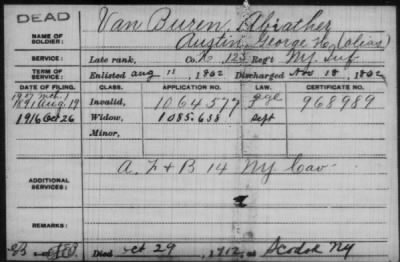 DEAD
Van Buren, Abiather
NAME OF SOLDIER:
Austin, George W. (alias)
SERVICE: Late rank, Co. K, 125 Reg't NY. Inf
TERM OF SERVICE: Enlisted Aug 11, 1862 Discharged Nov 18, 1862
DATE OF FILING. CLASS. APPLICATION NO. LAW. CERTIFICATE NO.
1891 Aug 19 Invalid, 1064577 968989
1916 Oct 26 Widow, 1085.638 Sept
Minor,
ADDITIONAL SERVICES: A. F + B 14 NY Cav
REMARKS:
Died Oct 29, 1902, at Scodok NY